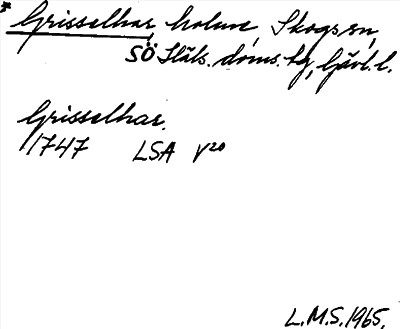 * Grisselhar, holme, Skogs sn,
SÖ Häls. doms. tg, Gävl. l.
Grisselhar.
1747 LSA V20
L.M.S. 1965.